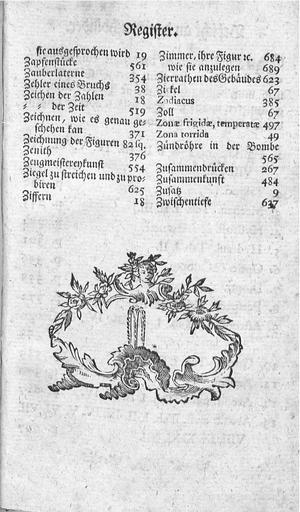 Register.
sie ausgesprochen wird 19
Zapfenstücke 561
Zauberlaterne 354
Zehler eines Bruchs 38
Zeichen der Zahlen 18
= = der Zeit 519
Zeichnen, wie es genau ge-
schehen kan 371
Zeichnung der Figuren 82 sq.
Zenith 376
Zeugmeistereykunst 554
Ziegel zu streichen und zu pro-
biren 625
Ziffern 18
Zimmer, ihre Figur ꝛc. 684
wie sie anzulegen 689
Zierrathen des Gebäudes 623
Zirkel 67
Zodiacus 385
Zoll 67
Zonæ frigidæ, temperatæ 497
Zona torrida 49
Zündröhre in der Bombe
565
Zusammendrücken 267
Zusammenkunft 484
Zusatz 9
Zwischentiefe 627